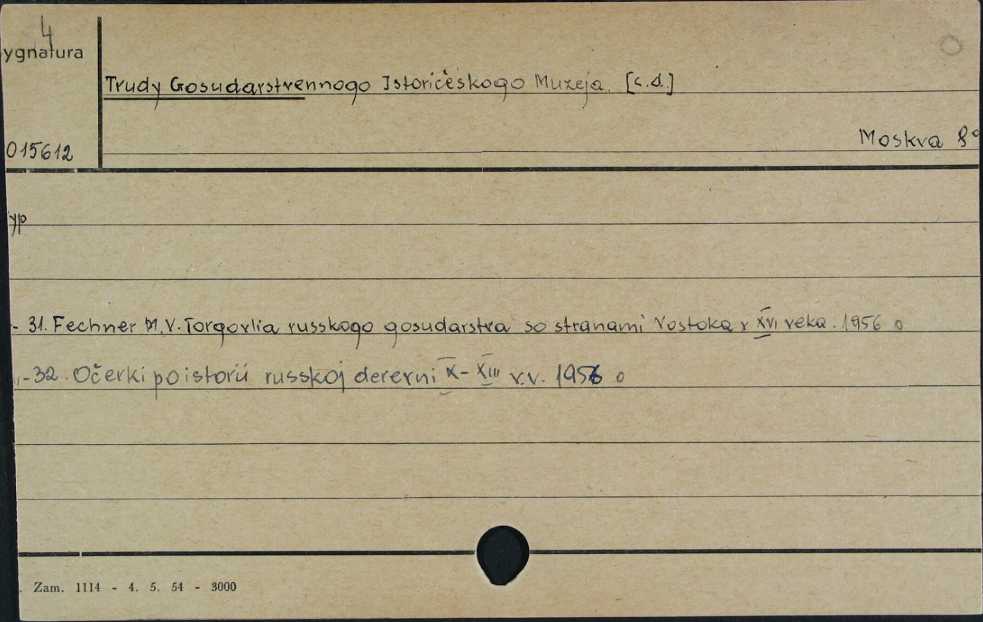 4
ygnatura
Trudy Gosudarstvennogo Istoričeskogo Muzeja. [c.d.]
015612
Moskva 8°
yp
- 31. Fechner M.V. Torgovlia russkogo gosudarstva so stranami Vostoka v XVI veka. 1956 o
"-32. Očerki po istorii russkoj derevni X - XIII v.v. 1956 o
Zam. 1114 - 4. 5. 54 - 3000